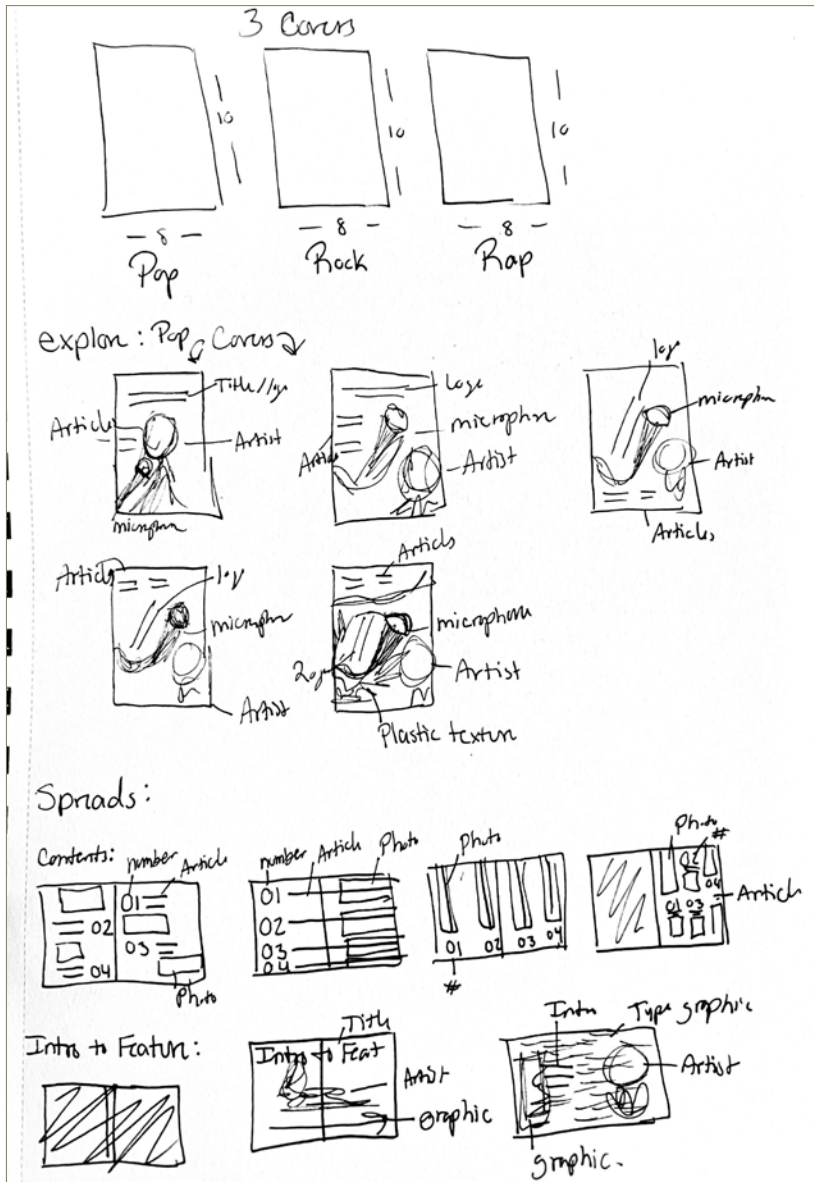 3 Covers
10
10
10
— 8 —
— 8 —
— 8 —
Pop
Rock
Rap
explore: Pop Covers
Title/logo
Article
Artist
microphone
Logo
microphone
Article
Artist
logo
microphone
Artist
Articles
Article
logo
microphone
Artist
Articles
microphone
Logo
Artist
Plastic texture
Spreads:
Contents:
number
Article
01
02
03
04
Photo
number
Article
Photo
01
02
03
04
Photo
01 02 03 04
#
Photo
#
02
04
01 03
Article
Intro to Feature:
Title
Intro to Feat
Artist
Graphic
Intro
Type graphic
Artist
graphic.